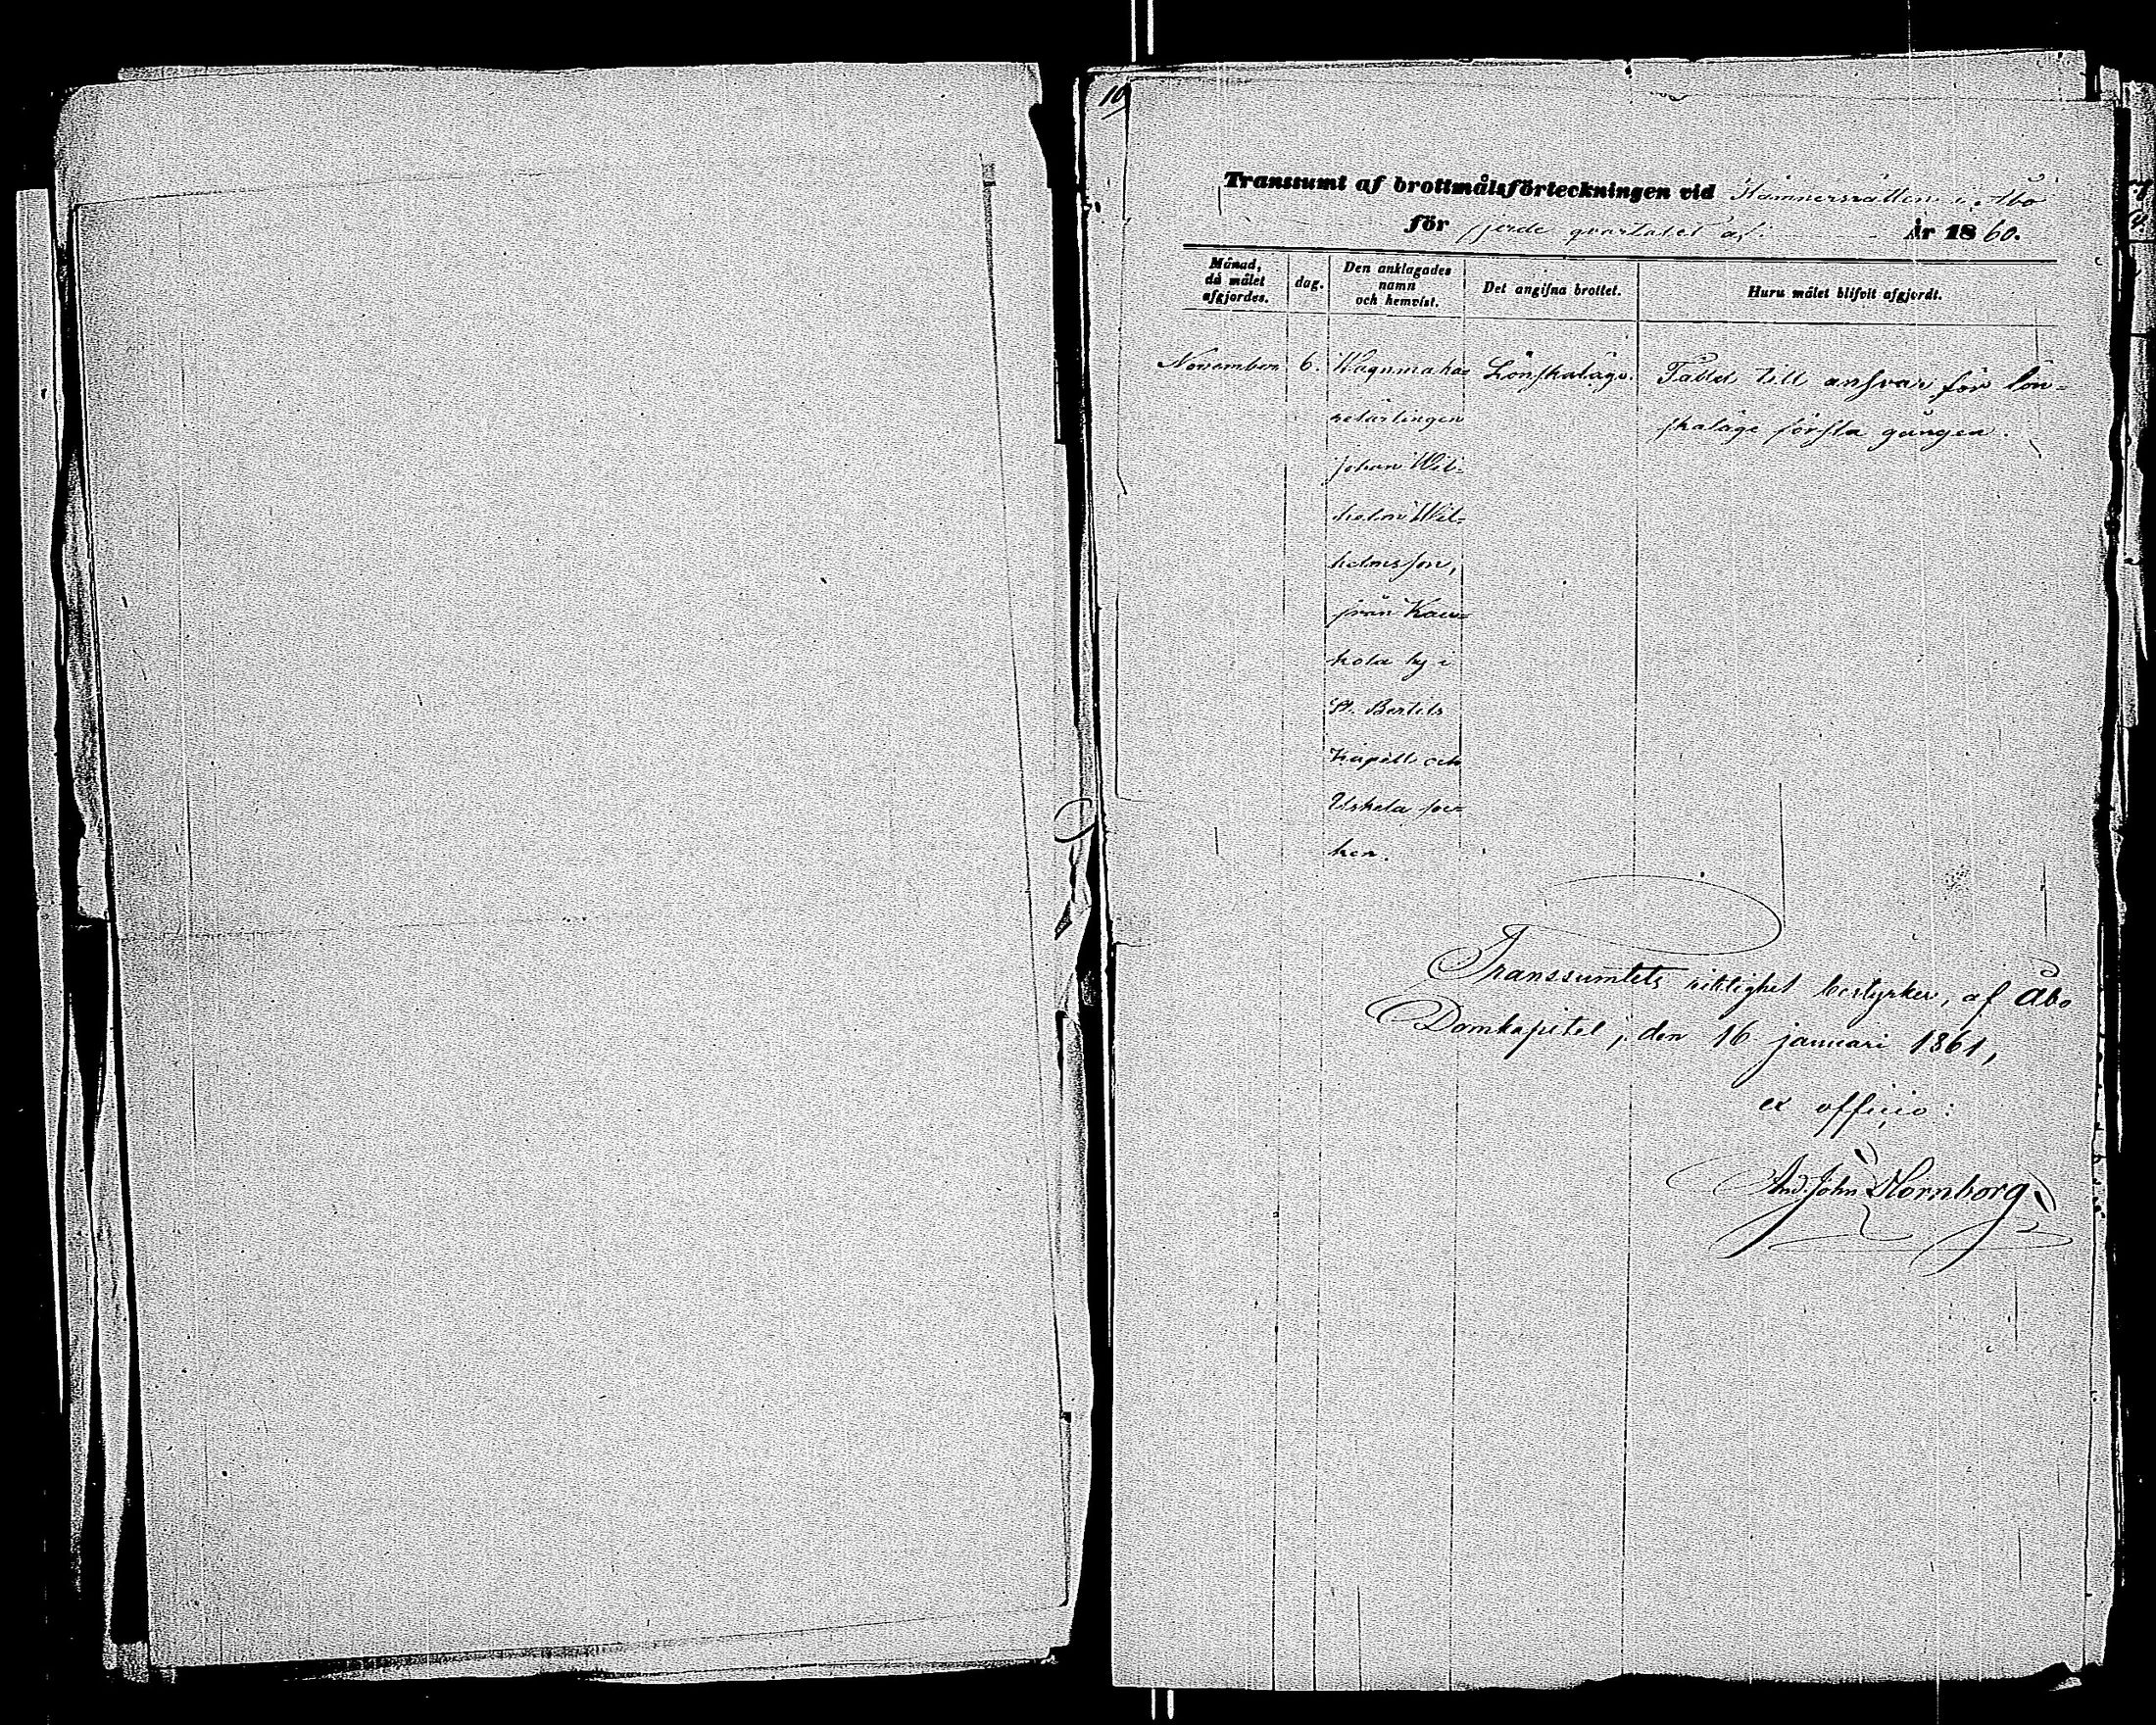 10
Transsumt af brottmålsförteckningen vid Kämnersrätten i Åbo
för fjerde qvartalet af år 1860.
Månad, då målet afgjordes.
dag.
Den anklagades namn och hemvist.
Det angifna brottet.
Huru målet blifvit afgjordt.
November 6. Wagnmaka= Lönskaläge. Fälld till ansvar för lön=
relärlingen skaläge första gången.
Johan Wil=
helm Wil=
helmsson,
från Kau=
kola by i
St. Bertils
Kapell och
Uskela soc=
ken.
Transsumtets riktighet bestyrker, af Åbo
Domkapitel, den 16 januari 1861,
ex officio:
And. John Hornborg